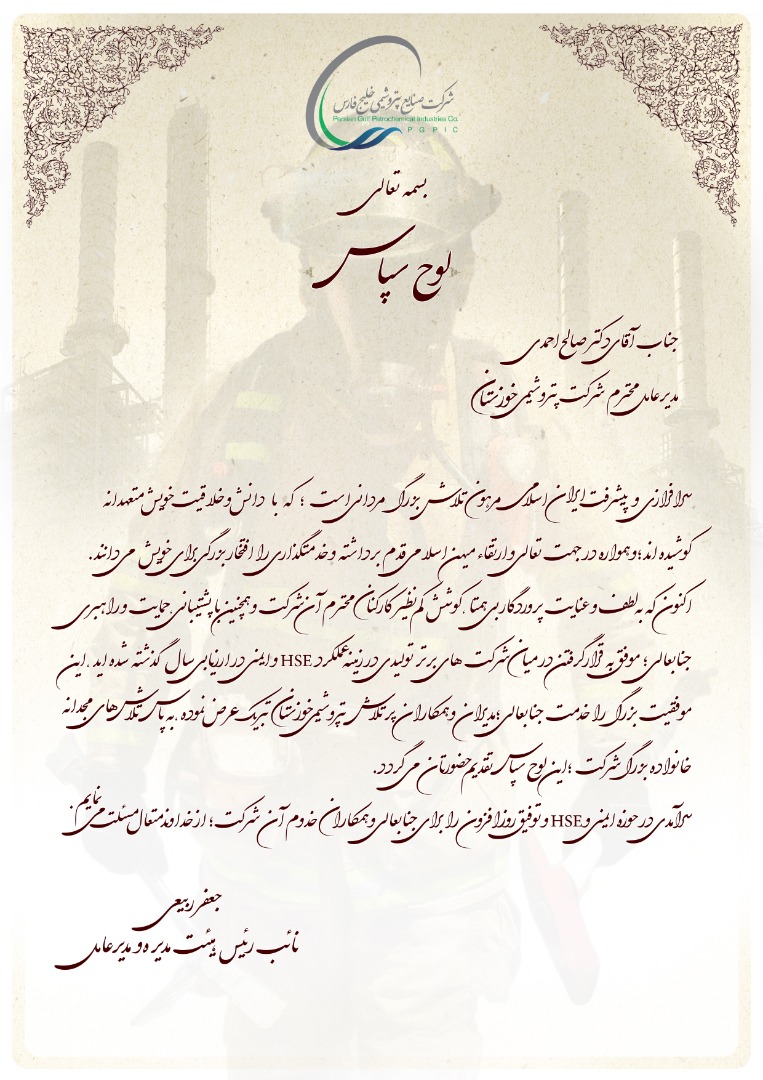 شرکت صنایع پتروشیمی خلیج فارس
Persian Gulf Petrochemical Industries Co.
PGPIC
بسمه تعالی
لوح سپاس
جناب آقای دکتر صالح احمدی
مدیرعامل محترم شرکت پتروشیمی خوزستان
سرافرازی و پیشرفت ایران اسلامی مرهون تلاش بزرگ مردانی است ؛ که با دانش و خلاقیت خویش متعهدانه
کوشیده اند؛ و همواره در جهت تعالی و ارتقاء میهن اسلامی قدم برداشته و خدمتگذاری را افتخار بزرگی برای خویش می دانند.
اکنون که به لطف و عنایت پروردگار بی همتا ,کوشش کم نظیر کارکنان محترم آن شرکت و همچنین با پشتیبانی ,حمایت و راهبری
جنابعالی؛ موفق به قرار گرفتن در میان شرکت های برتر تولیدی در زمینه عملکرد HSE و ایمنی در ارزیابی سال گذشته شده اید ,این
موفقیت بزرگ را خدمت جنابعالی؛مدیران و همکاران پر تلاش پتروشیمی خوزستان تبریک عرض نموده ,به پاس تلاش های مجدانه
خانواده بزرگ شرکت ؛این لوح سپاس تقدیم حضورتان می گردد.
سرآمدی در حوزه ایمنی و HSE و توفیق روزافزون را برای جنابعالی و همکاران خدوم آن شرکت؛ از خداوند متعال مسئلت می نمایم.
جعفر ربیعی
نائب رئیس هیئت مدیره و مدیرعامل